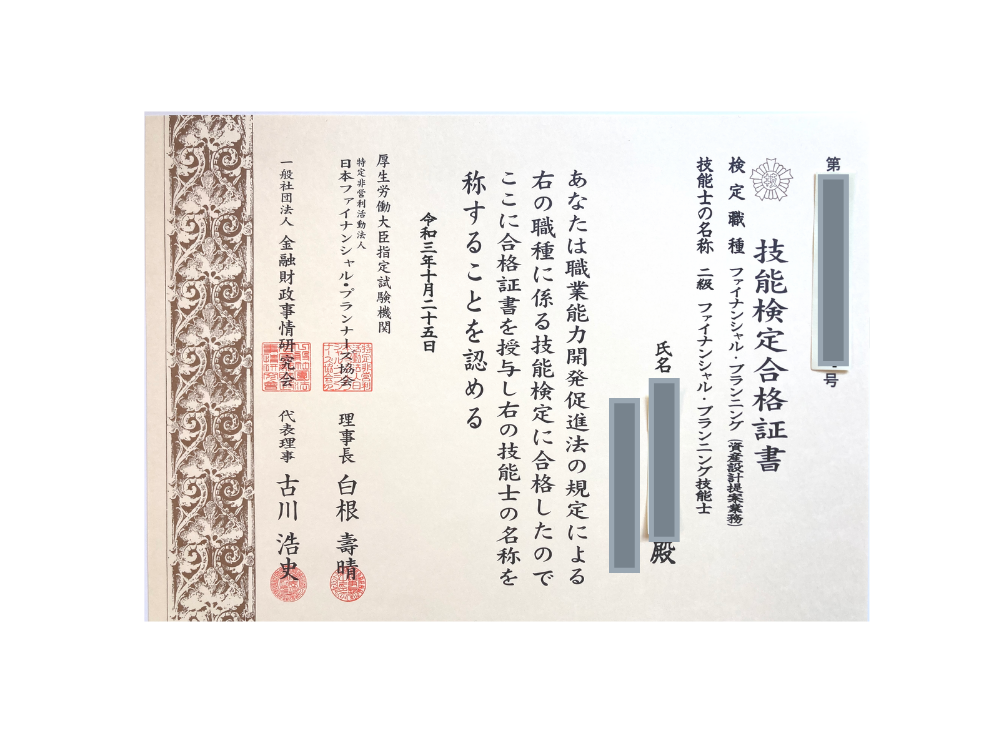 第
号
技能検定合格証書
検定職種 ファイナンシャル・プランニング（資産設計提案業務）
技能士の名称 二級 ファイナンシャル・プランニング技能士
氏名
殿
あなたは職業能力開発促進法の規定による
右の職種に係る技能検定に合格したので
ここに合格証書を授与し右の技能士の名称を
称することを認める
令和三年十月二十五日
厚生労働大臣指定試験機関
特定非営利活動法人
日本ファイナンシャル・プランナーズ協会 理事長 白根 壽晴
一般社団法人 金融財政事情研究会 代表理事 古川 浩史